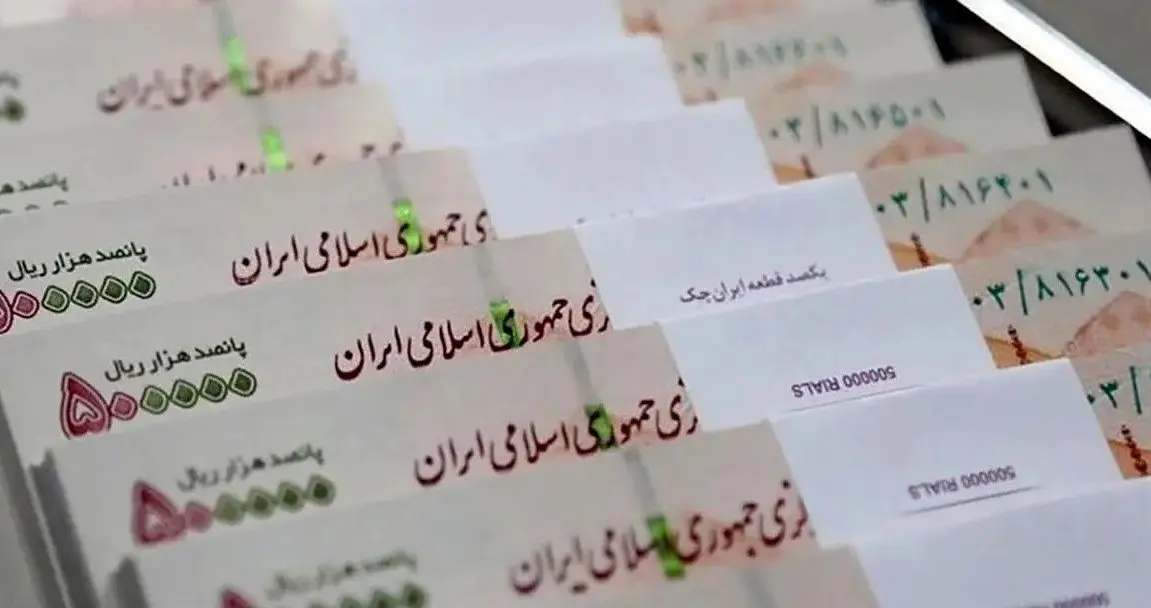 جمهوری اسلامی ایران
۰۳/۸۱۶۶۰۱
۰۳/۸۱۶۵۰۱
پانصد هزار ریال
۵۰۰۰۰۰
ری جمهوری اسلامی ایران
۰۳/۸۱۶۴۰۱
یکصد قطعه ایران چک
پانصد هزار ریال
۵۰۰۰۰۰
زی جمهوری اسلامی ایران
500000 RIALS
۰۳/۸۱۶۳۰۱
پانصد هزار ریال
۵۰۰۰۰۰
زی جمهوری اسلامی ایران
500000 RIALS
۰۳/
پانصد هزار ریال
کزی جمهوری اسلامی ایران